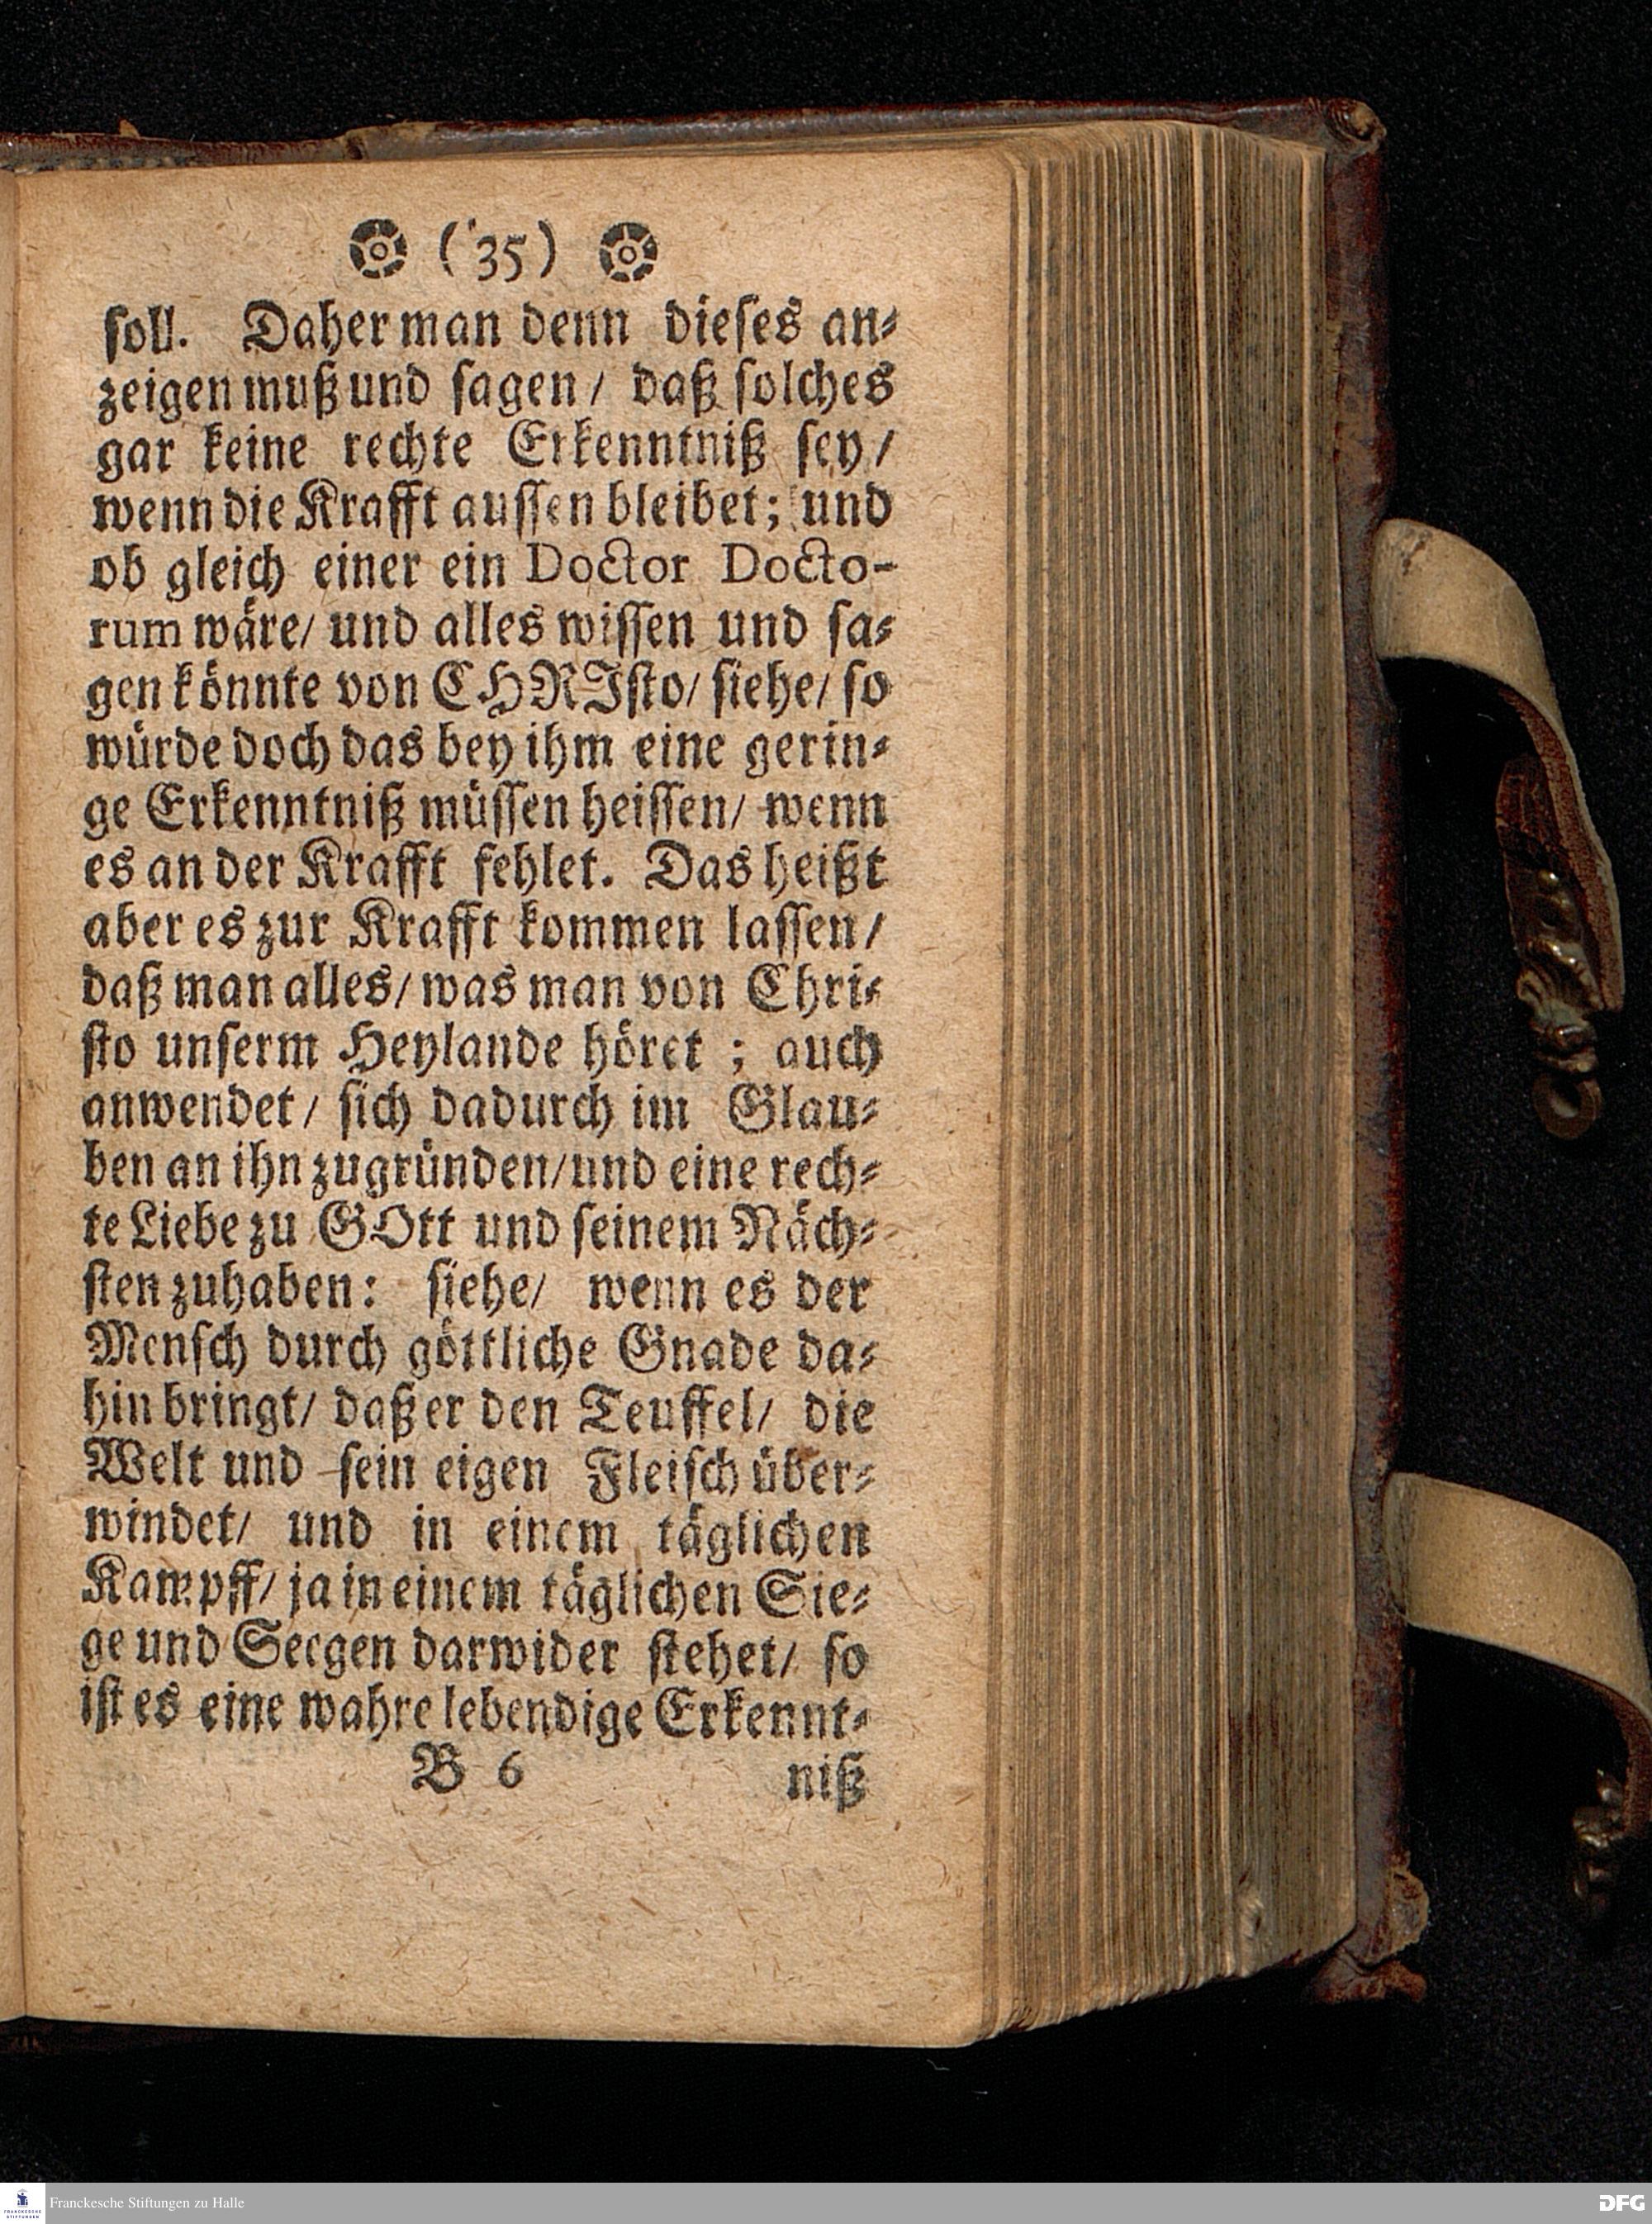 (35)
soll. Daher man denn dieses an⸗
zeigen muß und sagen / daß solches
gar keine rechte Erkenntniß sey /
wenn die Krafft aussen bleibet; und
ob gleich einer ein Doctor Docto-
rum wäre / und alles wissen und sa⸗
gen könnte von CHRIsto / siehe / so
würde doch das bey ihm eine gerin⸗
ge Erkenntniß müssen heissen / wenn
es an der Krafft fehlet. Das heißt
aber es zur Krafft kommen lassen /
daß man alles / was man von Chri⸗
sto unserm Heylande höret ; auch
anwendet / sich dadurch im Glau⸗
ben an ihn zugründen / und eine rech⸗
te Liebe zu GOtt und seinem Näch⸗
sten zuhaben: siehe / wenn es der
Mensch durch göttliche Gnade da⸗
hin bringt / daß er den Teuffel / die
Welt und sein eigen Fleisch über⸗
windet / und in einem täglichen
Kampff / ja in einem täglichen Sie⸗
ge und Seegen darwider stehet / so
ist es eine wahre lebendige Erkennt⸗
B 6 niß
Franckesche Stiftungen zu Halle
DFG